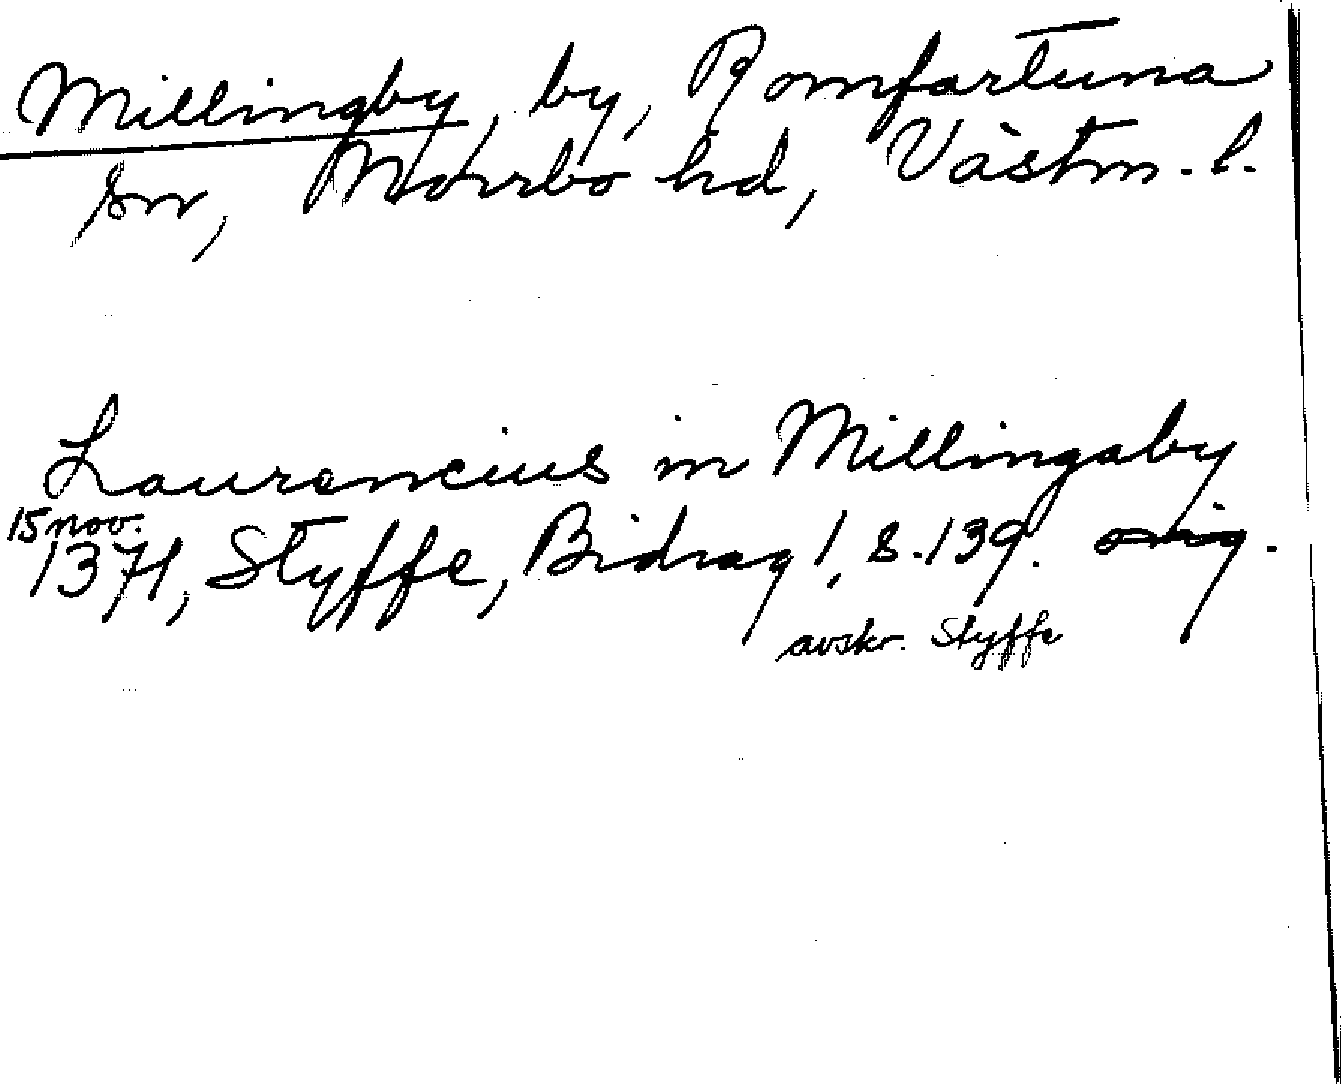 Millingby, by, Romfartuna
sn, Norrbo hd, Västm. l.
Laurencius in Millingaby
15 nov.
1371, Styffe, Bidrag 1, s. 139. orig.
avskr. Styffe